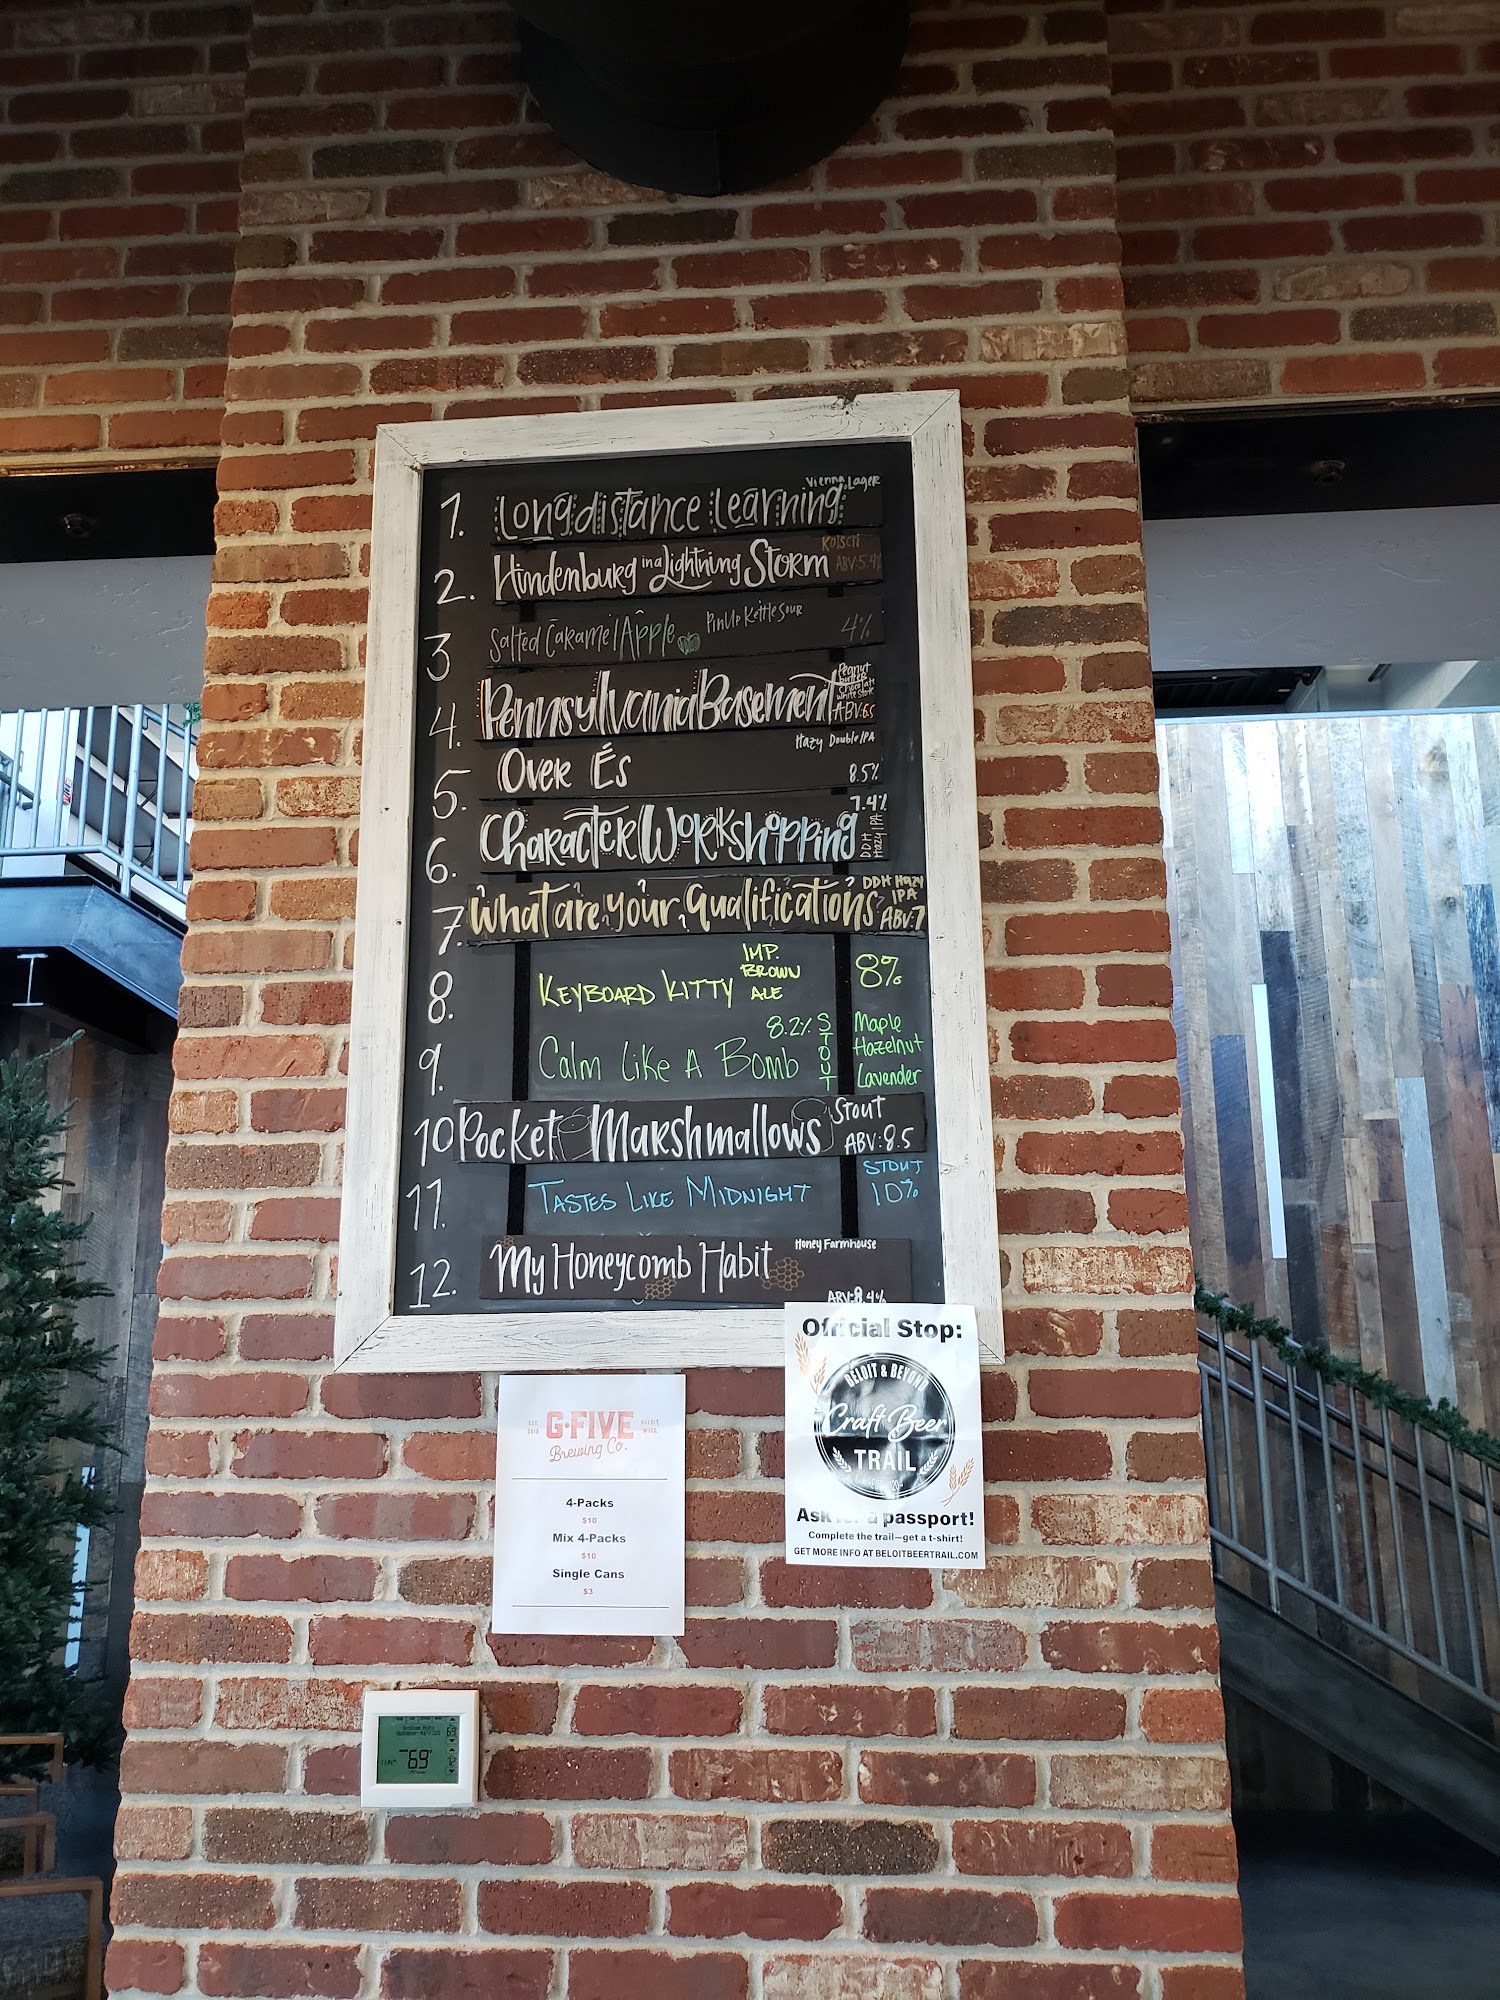 1. Long distance learning Vienna Lager
2. Hindenburg in a Lightning Storm Kolsch ABV:5.4%
3 Salted Caramel Apple PinUp Kettle Sour 4%
4. Pennsylvania Basement Peanut butter chocolate white stout ABV:6.5
5. Over És Hazy Double IPA 8.5%
6. Character Workshopping 7.4% DDH Hazy IPA
7. What are your Qualifications? DDH Hazy IPA ABV:7
8. Keyboard Kitty IMP. BROWN ALE 8%
9. Calm Like A Bomb 8.2% STOUT Maple Hazelnut Lavender
10 Pocket Marshmallows Stout ABV:8.5
11. Tastes Like Midnight STOUT 10%
12. My Honeycomb Habit Honey Farmhouse ABV:8.4%
Official Stop:
BELOIT & BEYOND
Craft Beer
TRAIL
Ask for a passport!
Complete the trail—get a t-shirt!
GET MORE INFO AT BELOITBEERTRAIL.COM
EST. G·FIVE BELOIT,
WISC.
Brewing Co.
4-Packs
$10
Mix 4-Packs
$10
Single Cans
$3
69